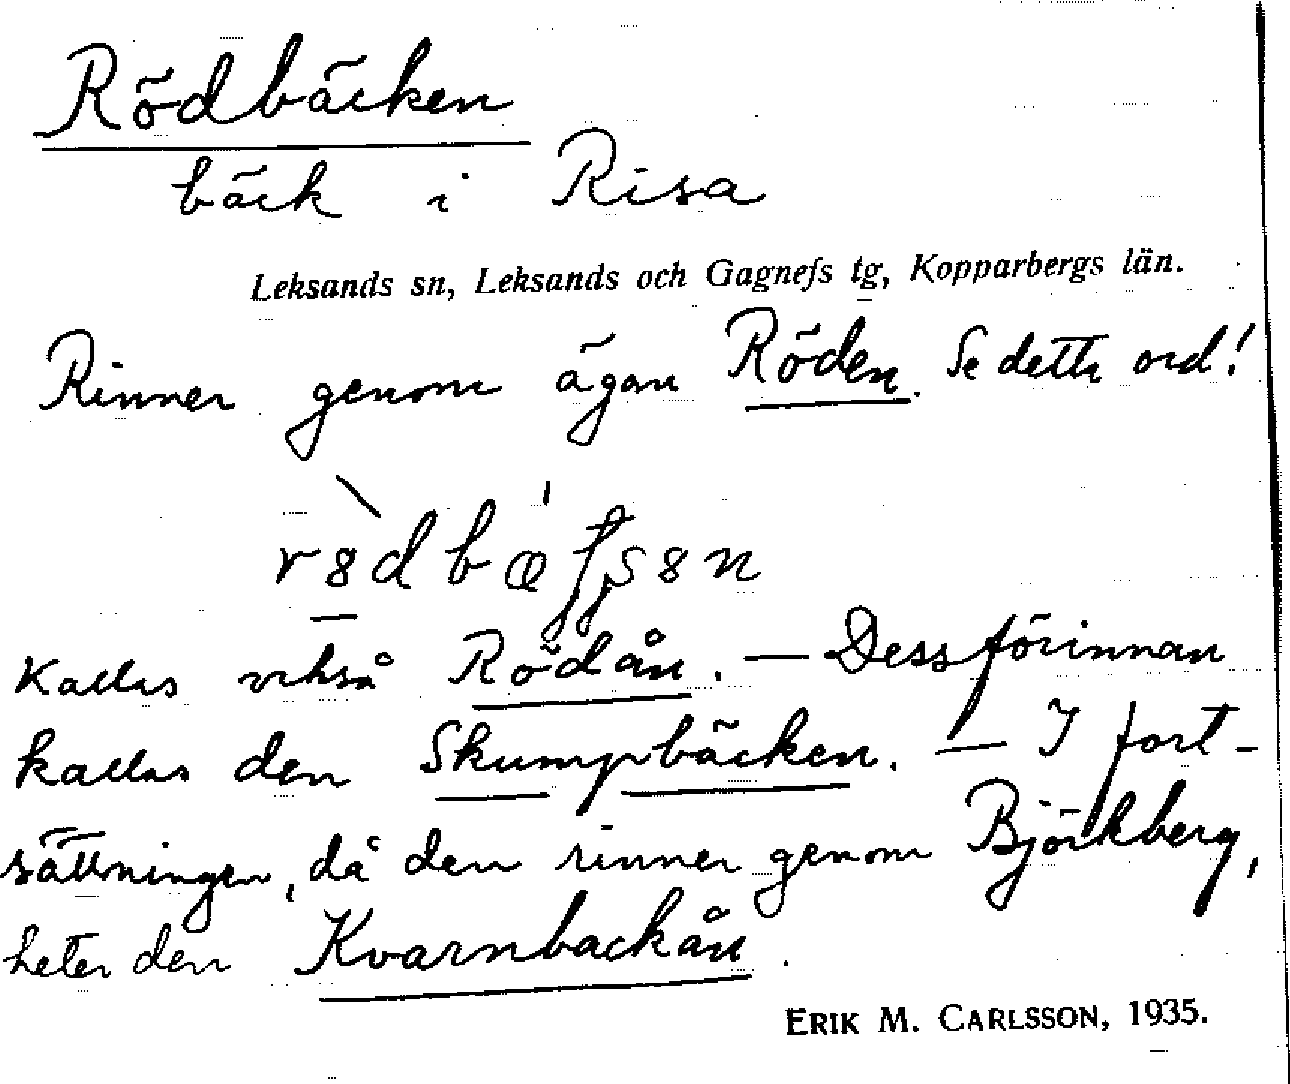 Rödbäcken
bäck i Risa
Leksands sn, Leksands och Gagnefs tg, Kopparbergs län.
Rinner genom ägan Röden. Se detta ord!
Kallas också Rödån. — Dessförinnan
kallas den Skumpbäcken. — I fort-
sättningen, då den rinner genom Björkberg,
heter den Kvarnbackån.
ERIK M. CARLSSON, 1935.